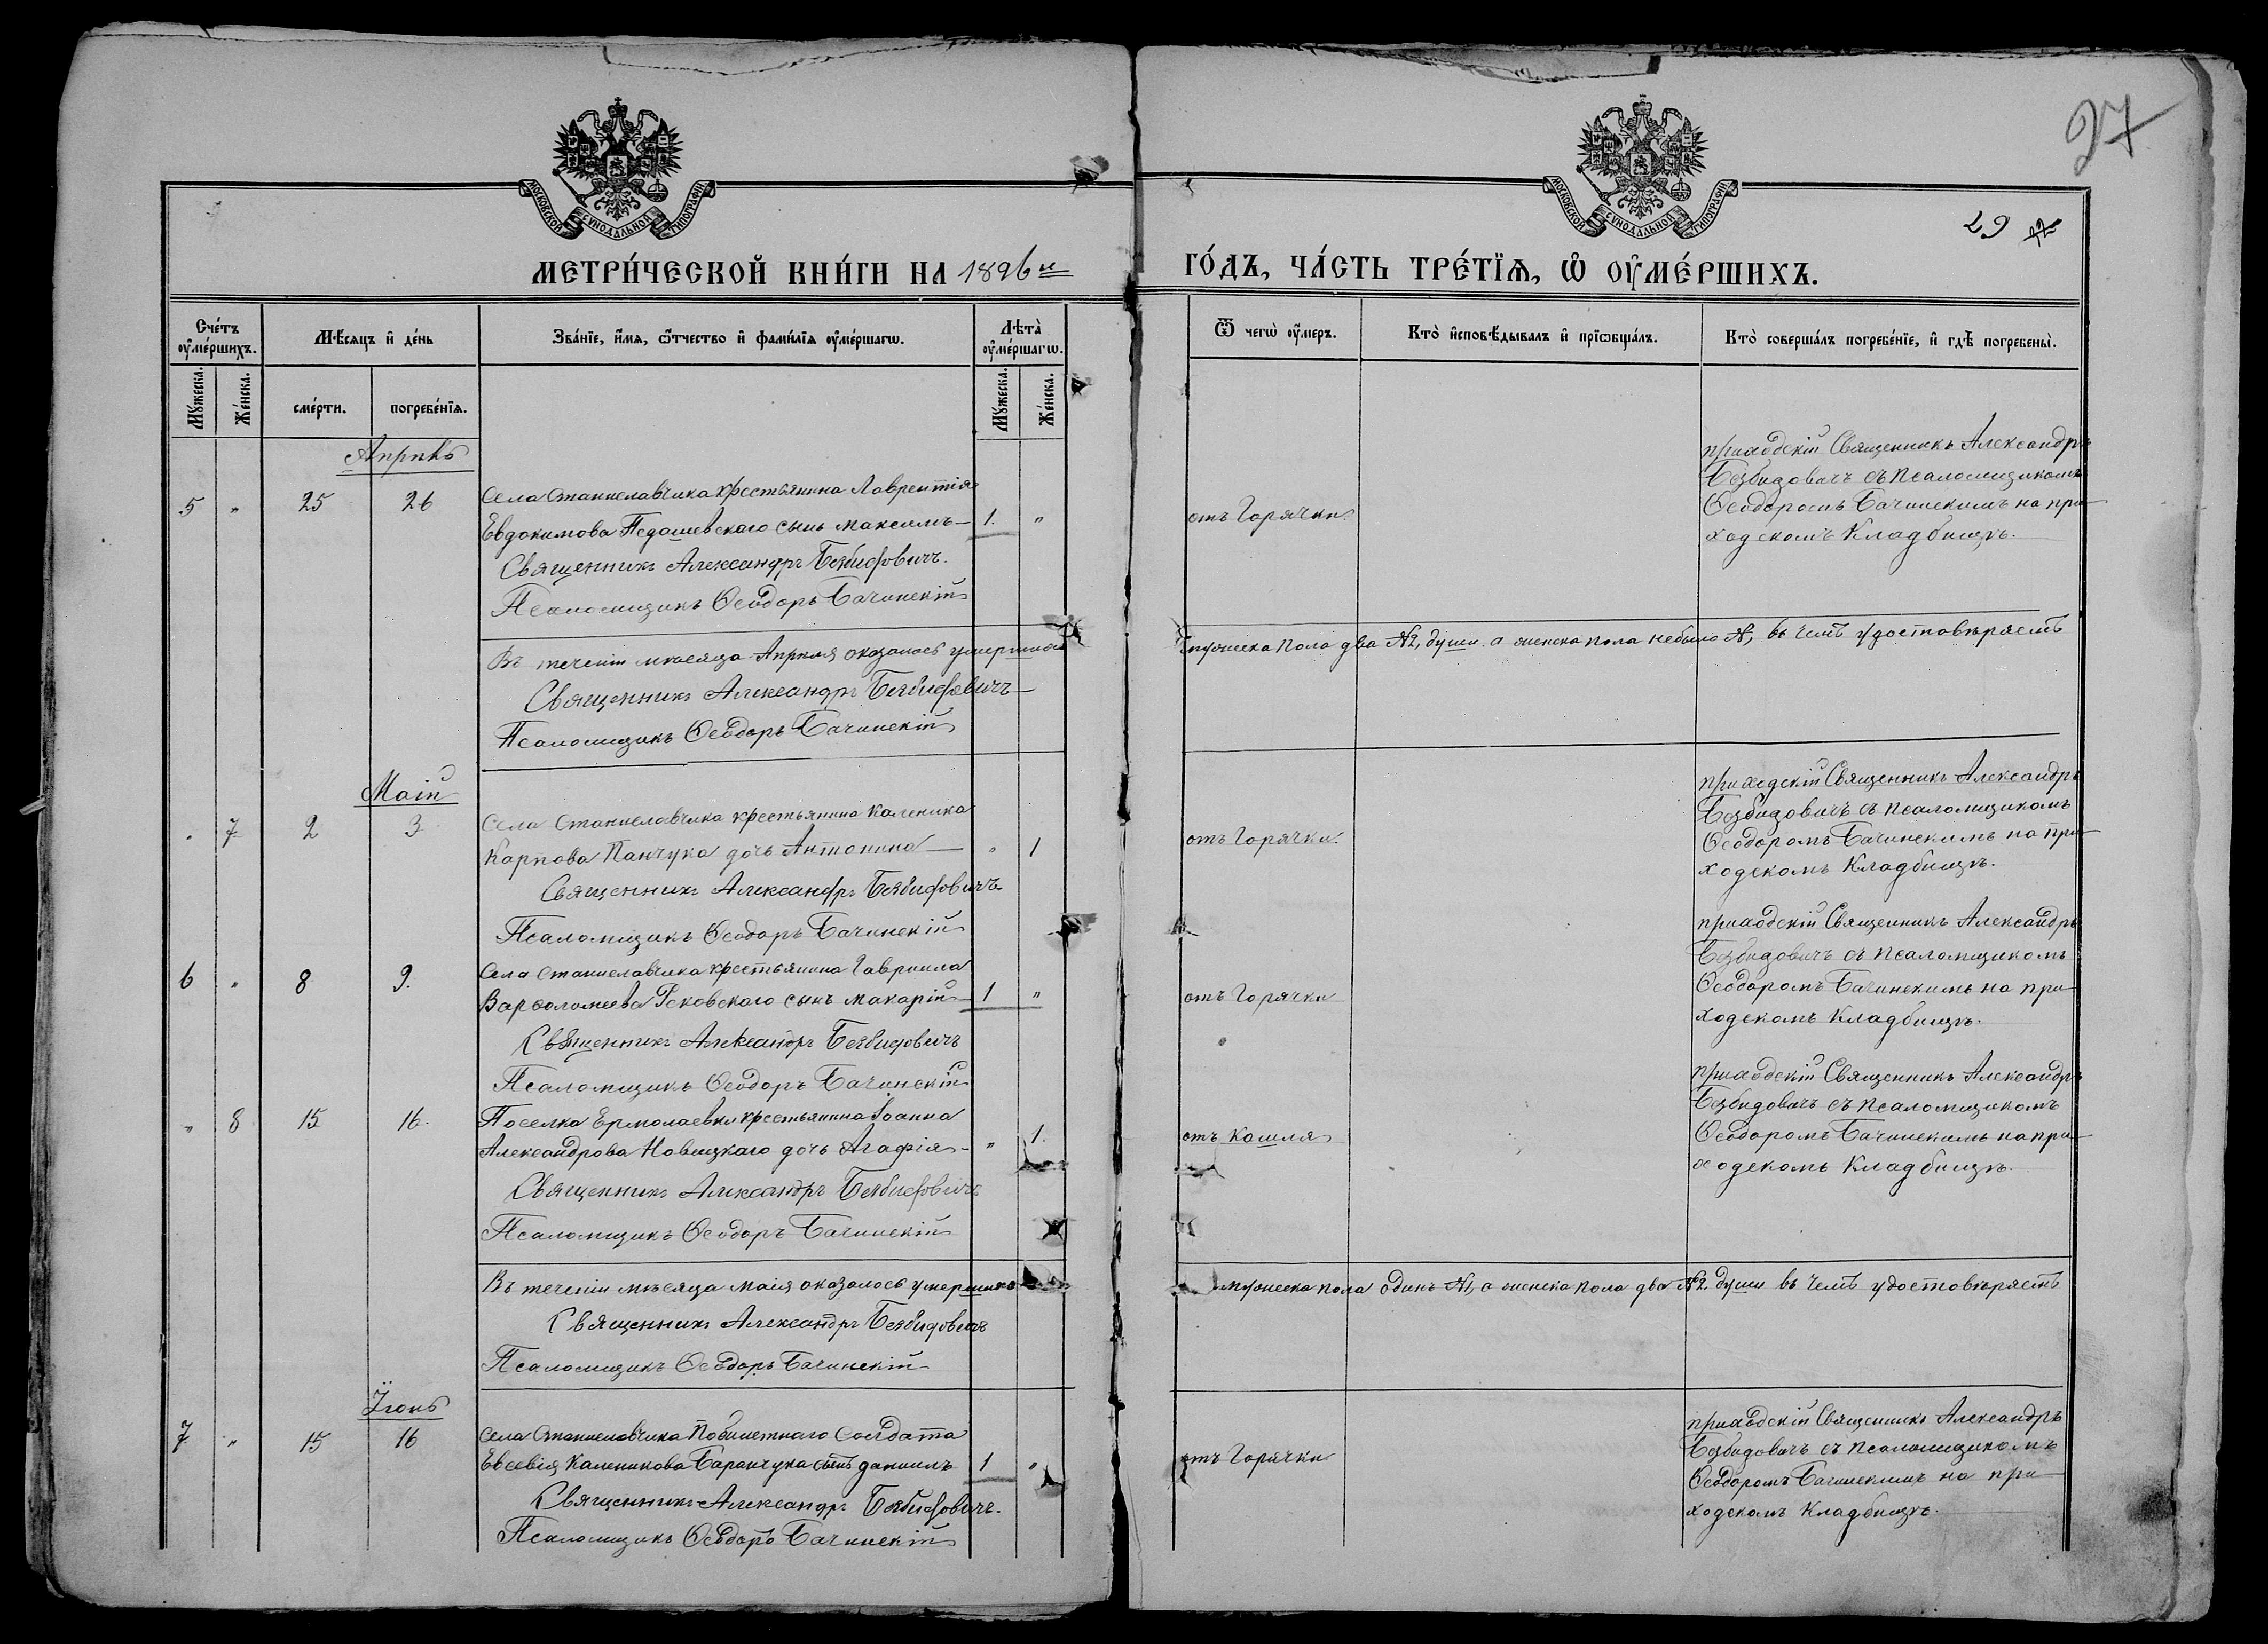 27
29
МОСКОВСКОЙ СѴНОДАЛЬНОЙ ТИПОГРАФІИ
МОСКОВСКОЙ СѴНОДАЛЬНОЙ ТИПОГРАФІИ
МЕТРИ́ЧЕСКОЙ КНИ́ГИ НА 1896й ГО́ДЪ, ЧА́СТЬ ТРЕ́ТЇѦ, Ѡ҆ ОУ҆МЕ́РШИХЪ.
Сче́тъ оу҆ме́ршихъ. Мѣ́сяцъ и҆ де́нь Зва́нїе, и҆́мя, ѻ҆́тчество и҆ фами́лїя оу҆ме́ршагѡ. Лѣта̀ оу҆ме́ршагѡ. Ѿ чегѡ̀ оу҆́меръ. Кто̀ и҆сповѣ́дывалъ и҆ прїѡбща́лъ. Кто̀ соверша́лъ погребе́нїе, и҆ гдѣ̀ погребены̀.
Мꙋ́жеска. Же́нска. сме́рти. погребе́нїя. Мꙋ́жеска. Же́нска.
Апрѣль
5 " 25 26 Села Станиславчика крестьянина Лаврентія
Евдокимова Педашевскаго сынъ Максимъ 1. "
Священникъ Александръ Безвидовичъ.
Псаломщикъ Ѳеодоръ Бачинскій
отъ Горячки.
приходскій Священникъ Александръ
Безвидовичъ съ псаломщикомъ
Ѳеодоромъ Бачинскимъ на при-
ходскомъ Кладбищѣ.
Въ теченіи мѣсяца Апрѣля оказалось умершихъ мужеска пола два №2, души. а женска пола небыло №, въ чемъ удостовѣряемъ
Священникъ Александръ Безвидовичъ
Псаломщикъ Ѳеодоръ Бачинскій
Маій
" 7 2 3 Села Станиславчика крестьянина Каленика
Карпова Панчука дочь Антонина " 1
Священникъ Александръ Безвидовичъ.
Псаломщикъ Ѳеодоръ Бачинскій
отъ Горячки.
приходскій Священникъ Александръ
Безвидовичъ съ псаломщикомъ
Ѳеодоромъ Бачинскимъ на при-
ходскомъ Кладбищѣ.
6 " 8 9. Села Станиславчика крестьянина Гавриила
Варѳоломеева Рековскаго сынъ Макарій 1 "
Священникъ Александръ Безвидовичъ
Псаломщикъ Ѳеодоръ Бачинскій
отъ Горячки
приходскій Священникъ Александръ
Безвидовичъ съ псаломщикомъ
Ѳеодоромъ Бачинскимъ на при-
ходскомъ Кладбищѣ.
" 8 15 16. Поселка Ермолаевки крестьянина Іоанна
Александрова Новицкаго дочь Агафія " 1.
Священникъ Александръ Безвидовичъ
Псаломщикъ Ѳеодоръ Бачинскій
отъ Кашля
приходскій Священникъ Александръ
Безвидовичъ съ псаломщикомъ
Ѳеодоромъ Бачинскимъ на при-
ходскомъ Кладбищѣ.
Въ теченіи мѣсяца маія оказалось умершихъ мужеска пола одинъ №1, а женска пола два №2 души въ чемъ удостовѣряемъ
Священникъ Александръ Безвидовичъ
Псаломщикъ Ѳеодоръ Бачинскій
Іюнь
7 " 15 16 Села Станиславчика Побилетнаго Солдата
Евсевія Каленикова Баранчука сынъ Даніилъ 1 "
Священникъ Александръ Безвидовичъ.
Псаломщикъ Ѳеодоръ Бачинскій
отъ Горячки
приходскій Священникъ Александръ
Безвидовичъ съ псаломщикомъ
Ѳеодоромъ Бачинскимъ на при-
ходскомъ Кладбищѣ.